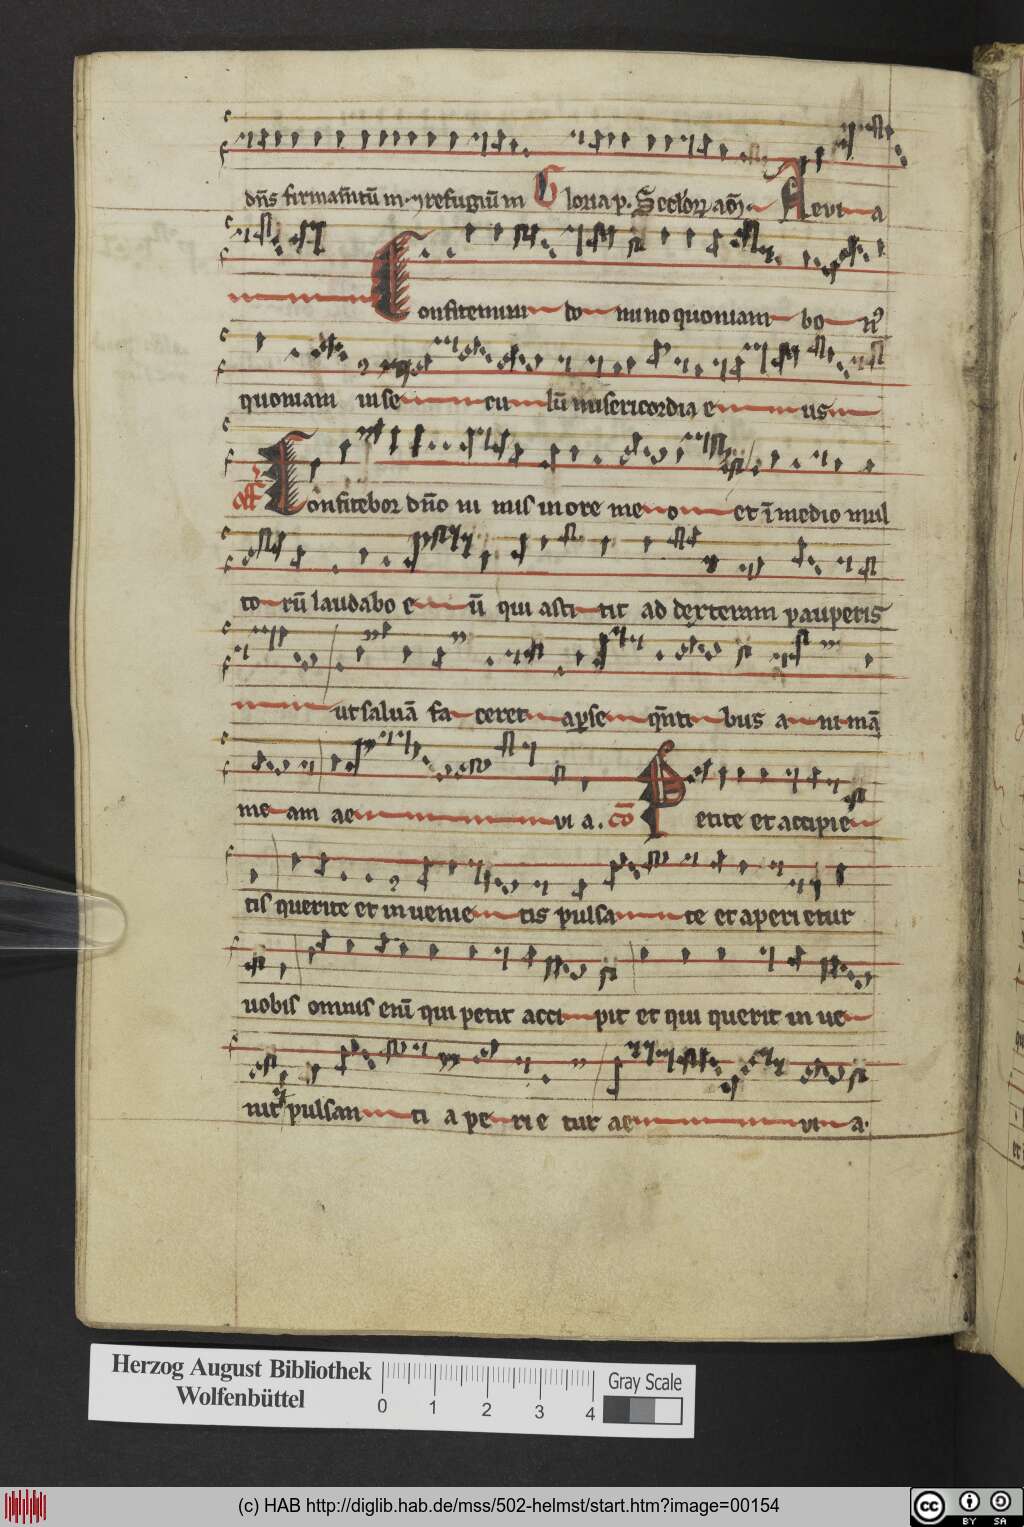 dn̄s firmam̄tū m. ⁊ refugiū m Gloria p. Seclor̨ am̄. Aevi a
Confitemini domino quoniam bon᷒
quoniam in seculū misericordia eius
off̄ Confitebor dn̄o nimis in ore meo et ī medio mul
torū laudabo eū qui astitit ad dexteram pauperis
ut saluā faceret a p̱seqn̄tibus animā
meam aevia. cō Petite et accipie
tis querite et invenietis pulsate et aperietur
uobis omnis enī qui petit accipit et qui querit inve
nit ⁊ pulsanti aperietur aevia.
Herzog August Bibliothek
Wolfenbüttel
0 1 2 3 4
Gray Scale
(c) HAB http://diglib.hab.de/mss/502-helmst/start.htm?image=00154
cc BY SA